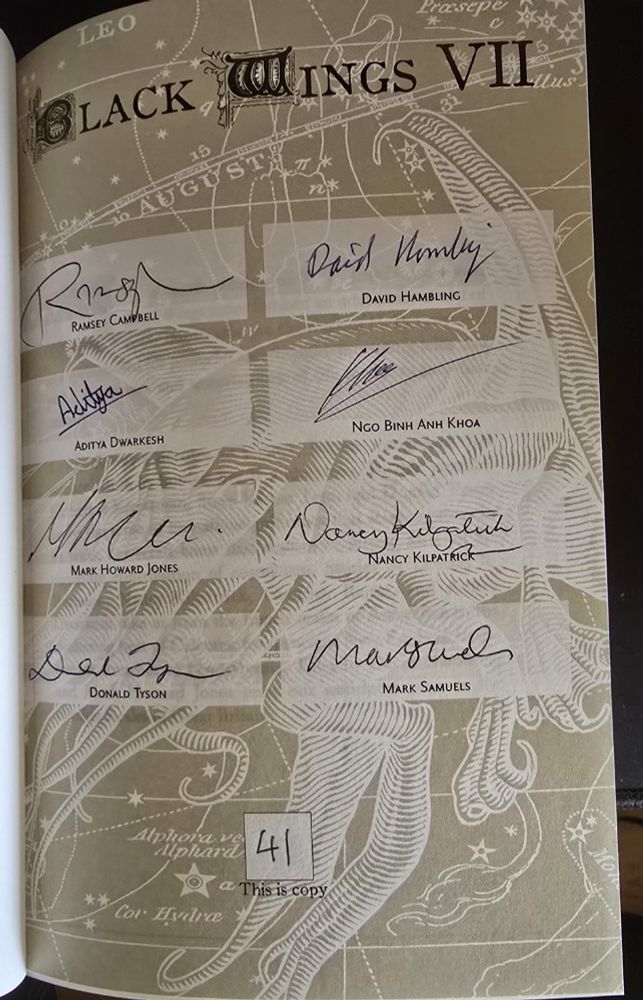 LEO
Præsepe
BLACK WINGS VII
15
31
AUGUST
π
Ramsey Campbell
David Hambling
DAVID HAMBLING
RAMSEY CAMPBELL
Aditya
NGO BINH ANH KHOA
ADITYA DWARKESH
Nancy Kilpatrick
MARK HOWARD JONES
NANCY KILPATRICK
Mark Samuels
DONALD TYSON
MARK SAMUELS
Alphard
41
This is copy
Cor Hydræ